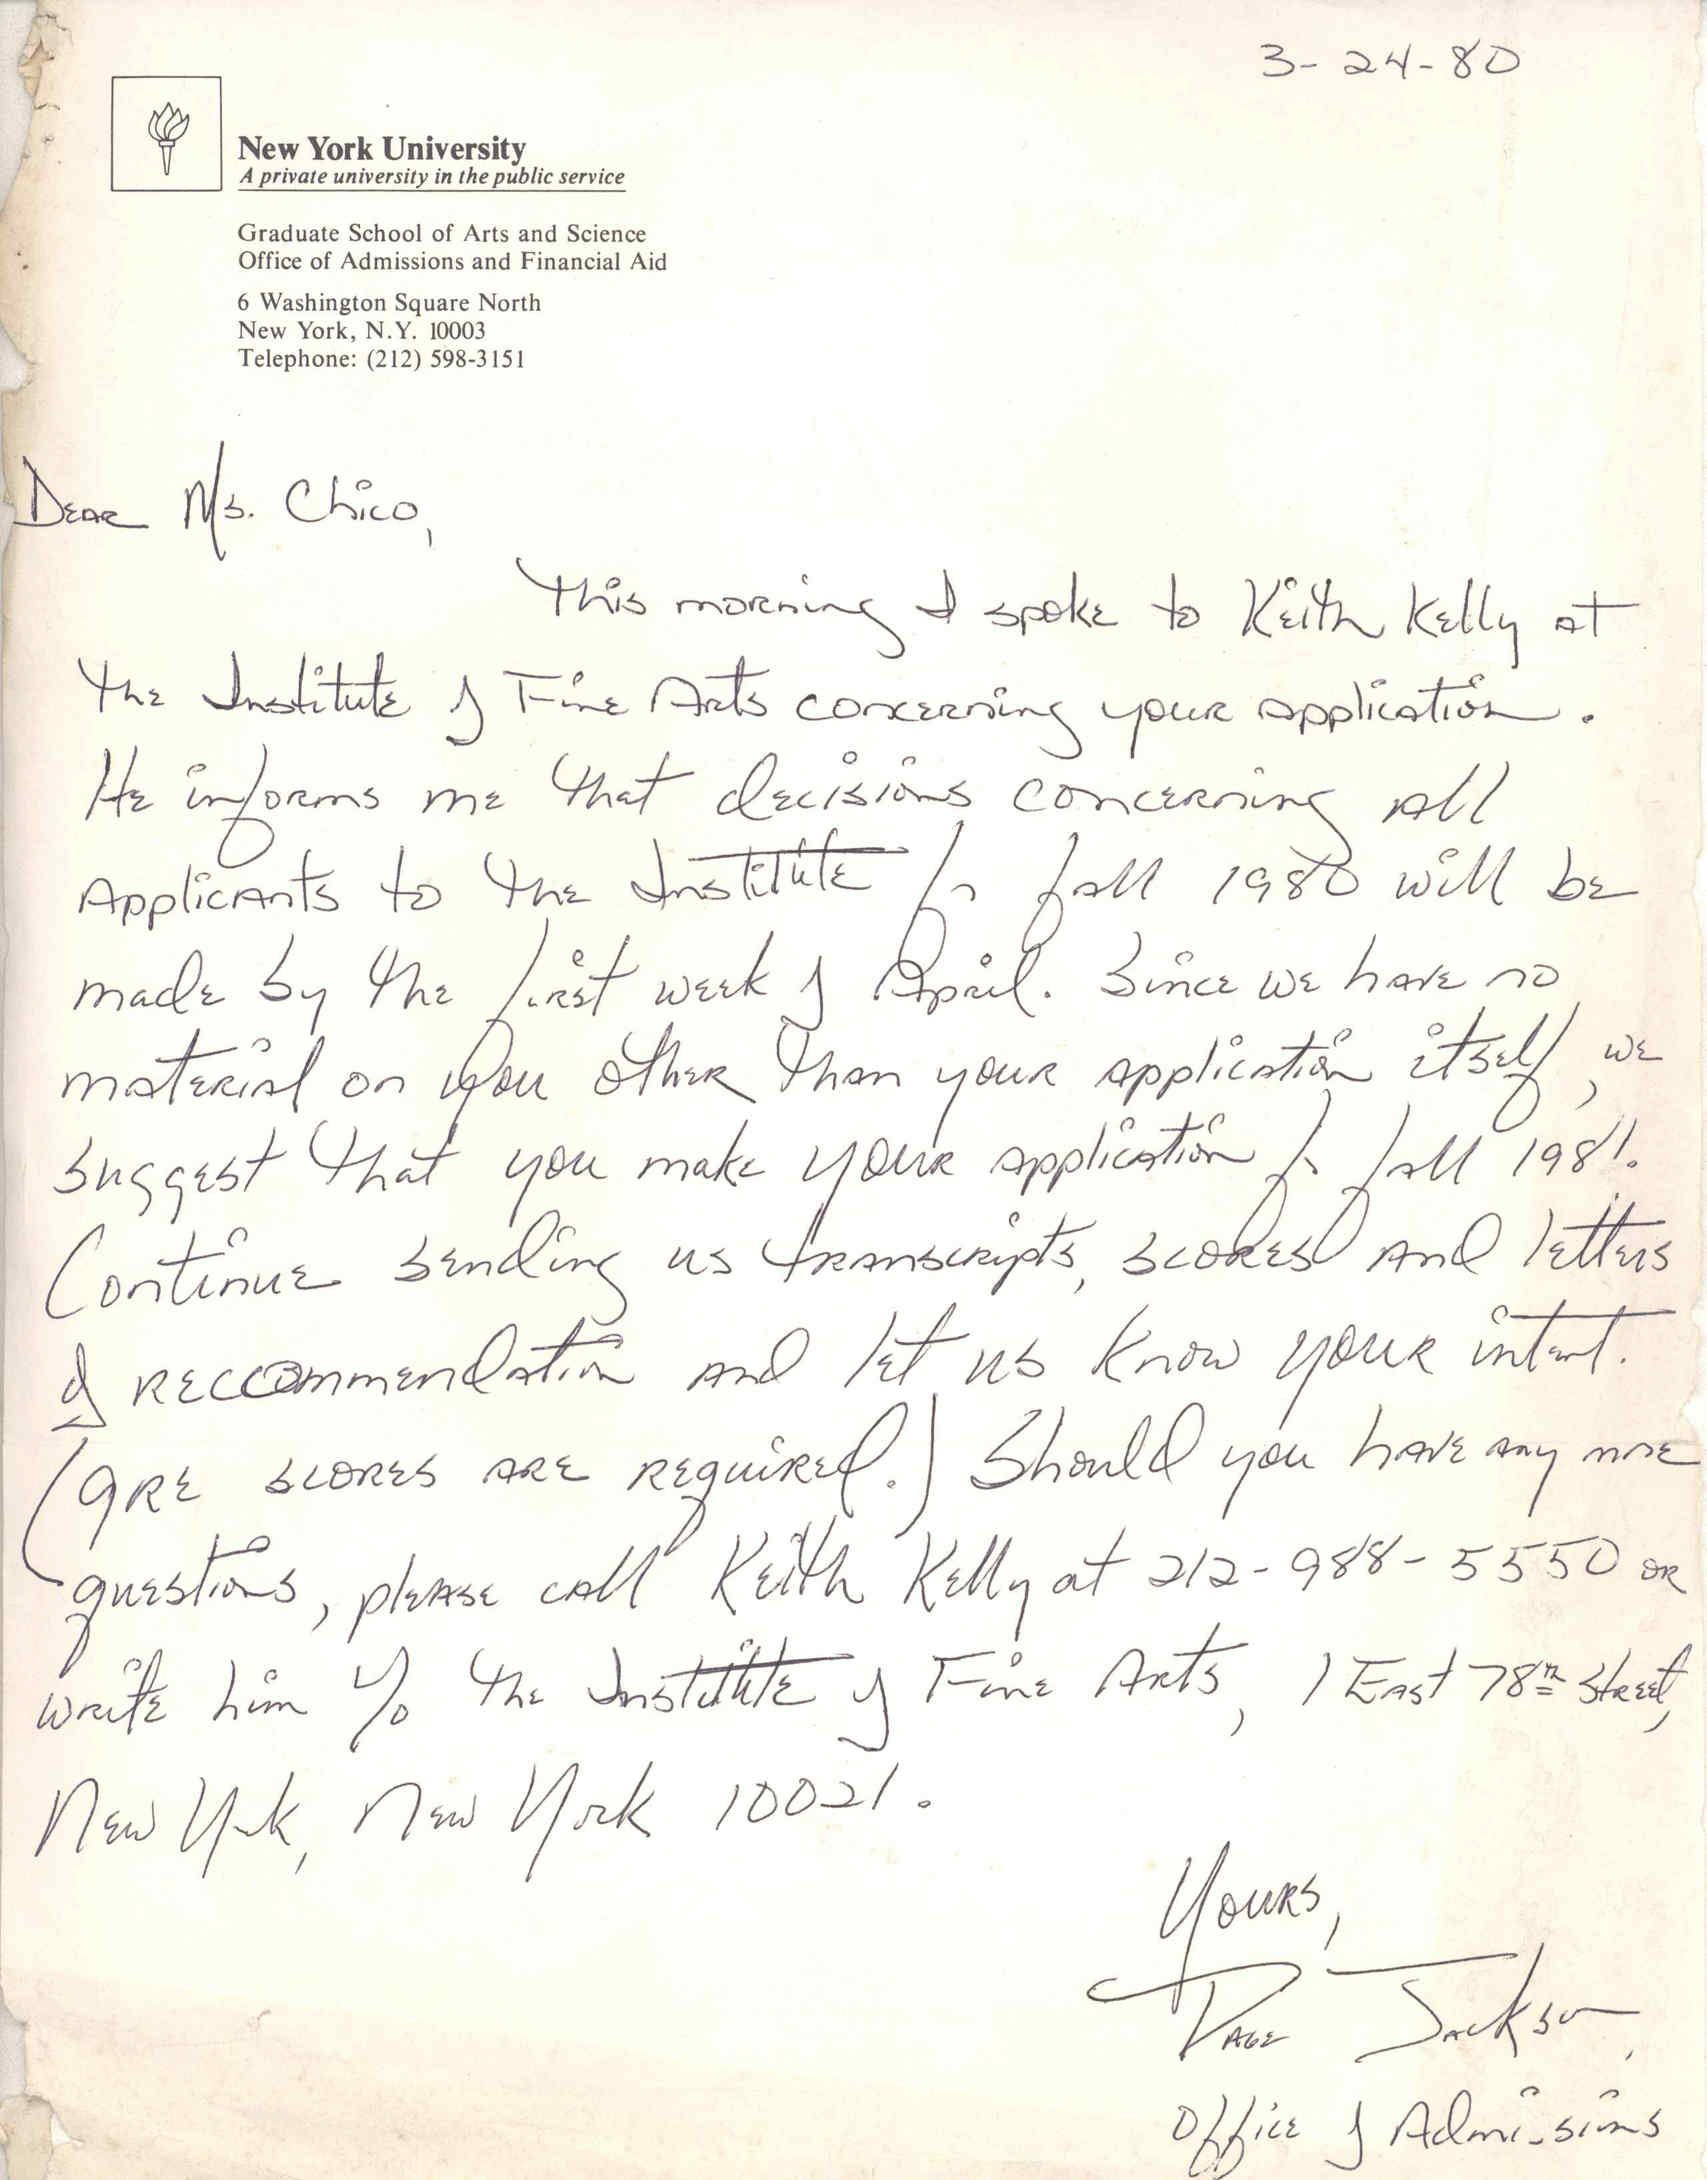 3-24-80
New York University
A private university in the public service
Graduate School of Arts and Science
Office of Admissions and Financial Aid
6 Washington Square North
New York, N.Y. 10003
Telephone: (212) 598-3151
Dear Ms. Chico,
This morning I spoke to Keith Kelly at
the Institute of Fine Arts concerning your application.
He informs me that decisions concerning all
applicants to the Institute for fall 1980 will be
made by the first week of April. Since we have no
material on you other than your application itself, we
suggest that you make your application for fall 1981.
Continue sending us transcripts, scores and letters
of reccommendation and let us know your intent.
(GRE scores are required.) Should you have any more
questions, please call Keith Kelly at 212-988-5550 or
write him c/o the Institute of Fine Arts, 1 East 78th Street,
New York, New York 10021.
Yours,
Page Jackson,
Office of Admissions